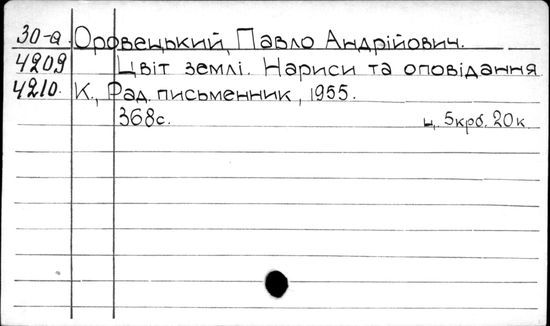 30-а Оровецький, Павло Андрійович.
4209 Цвіт землі. Нариси та оповідання
4210. К., Рад. письменник, 1955.
368с. ц. 5крб. 20к